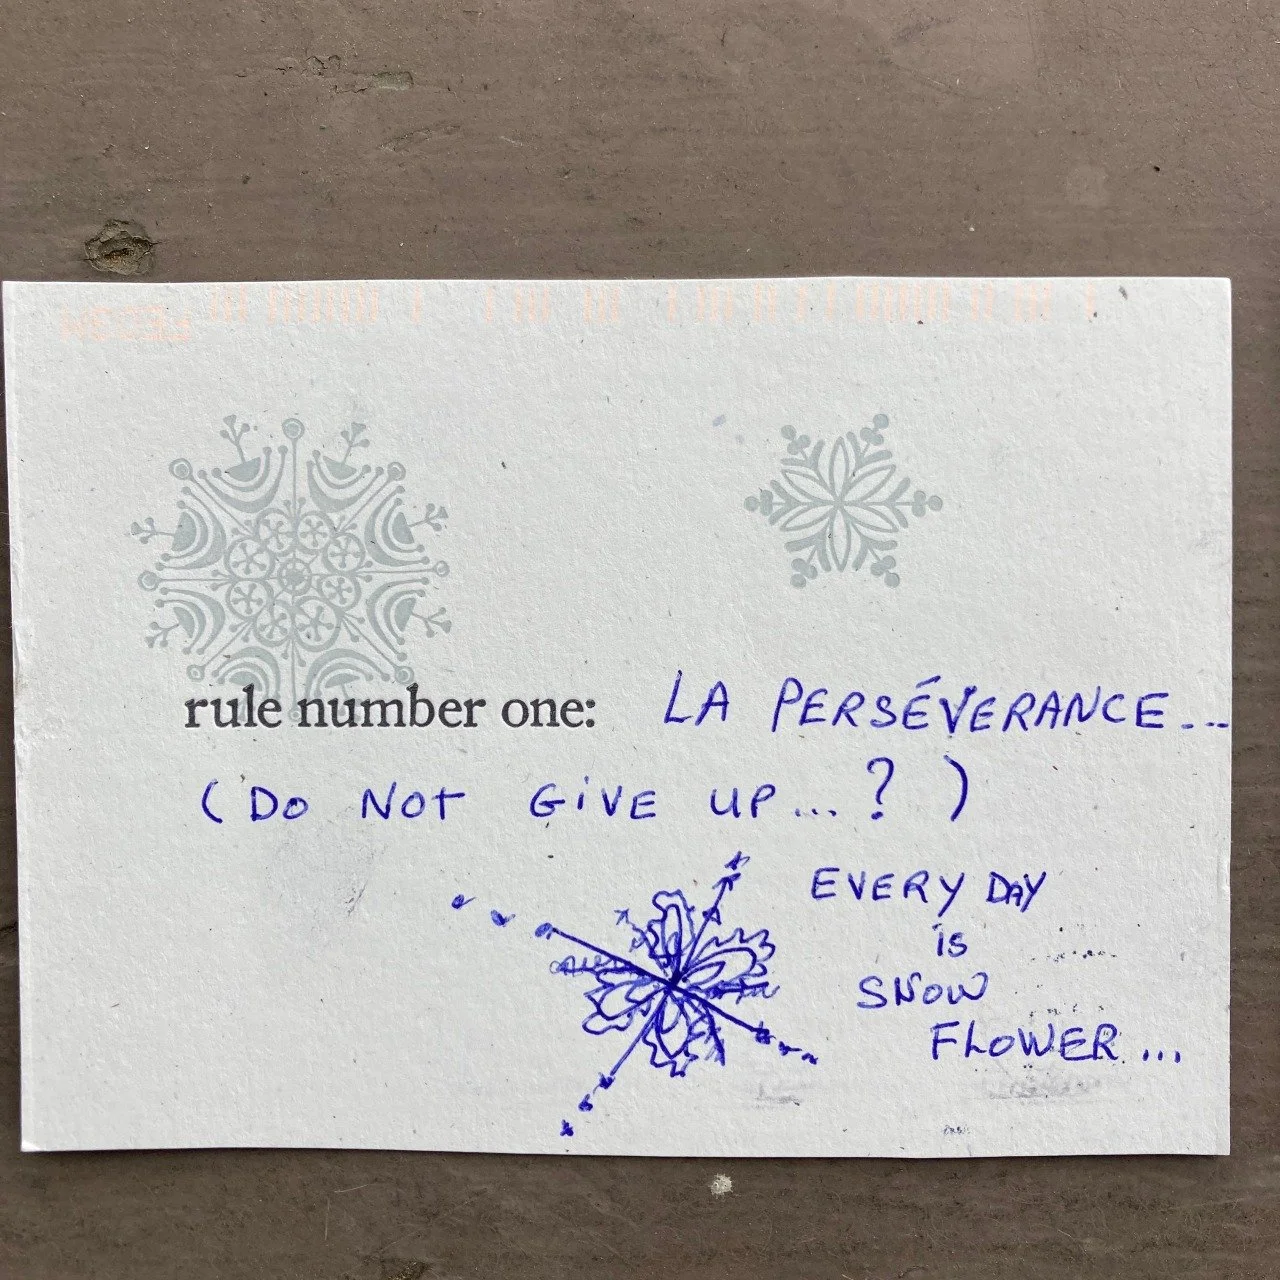 rule number one: LA PERSÉVERANCE...
(DO NOT GIVE UP...?)
EVERY DAY
is
SNOW
FLOWER...